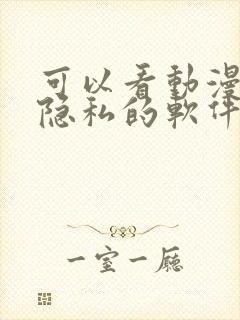 可以看動漫
隐私的軟件
一室一廳